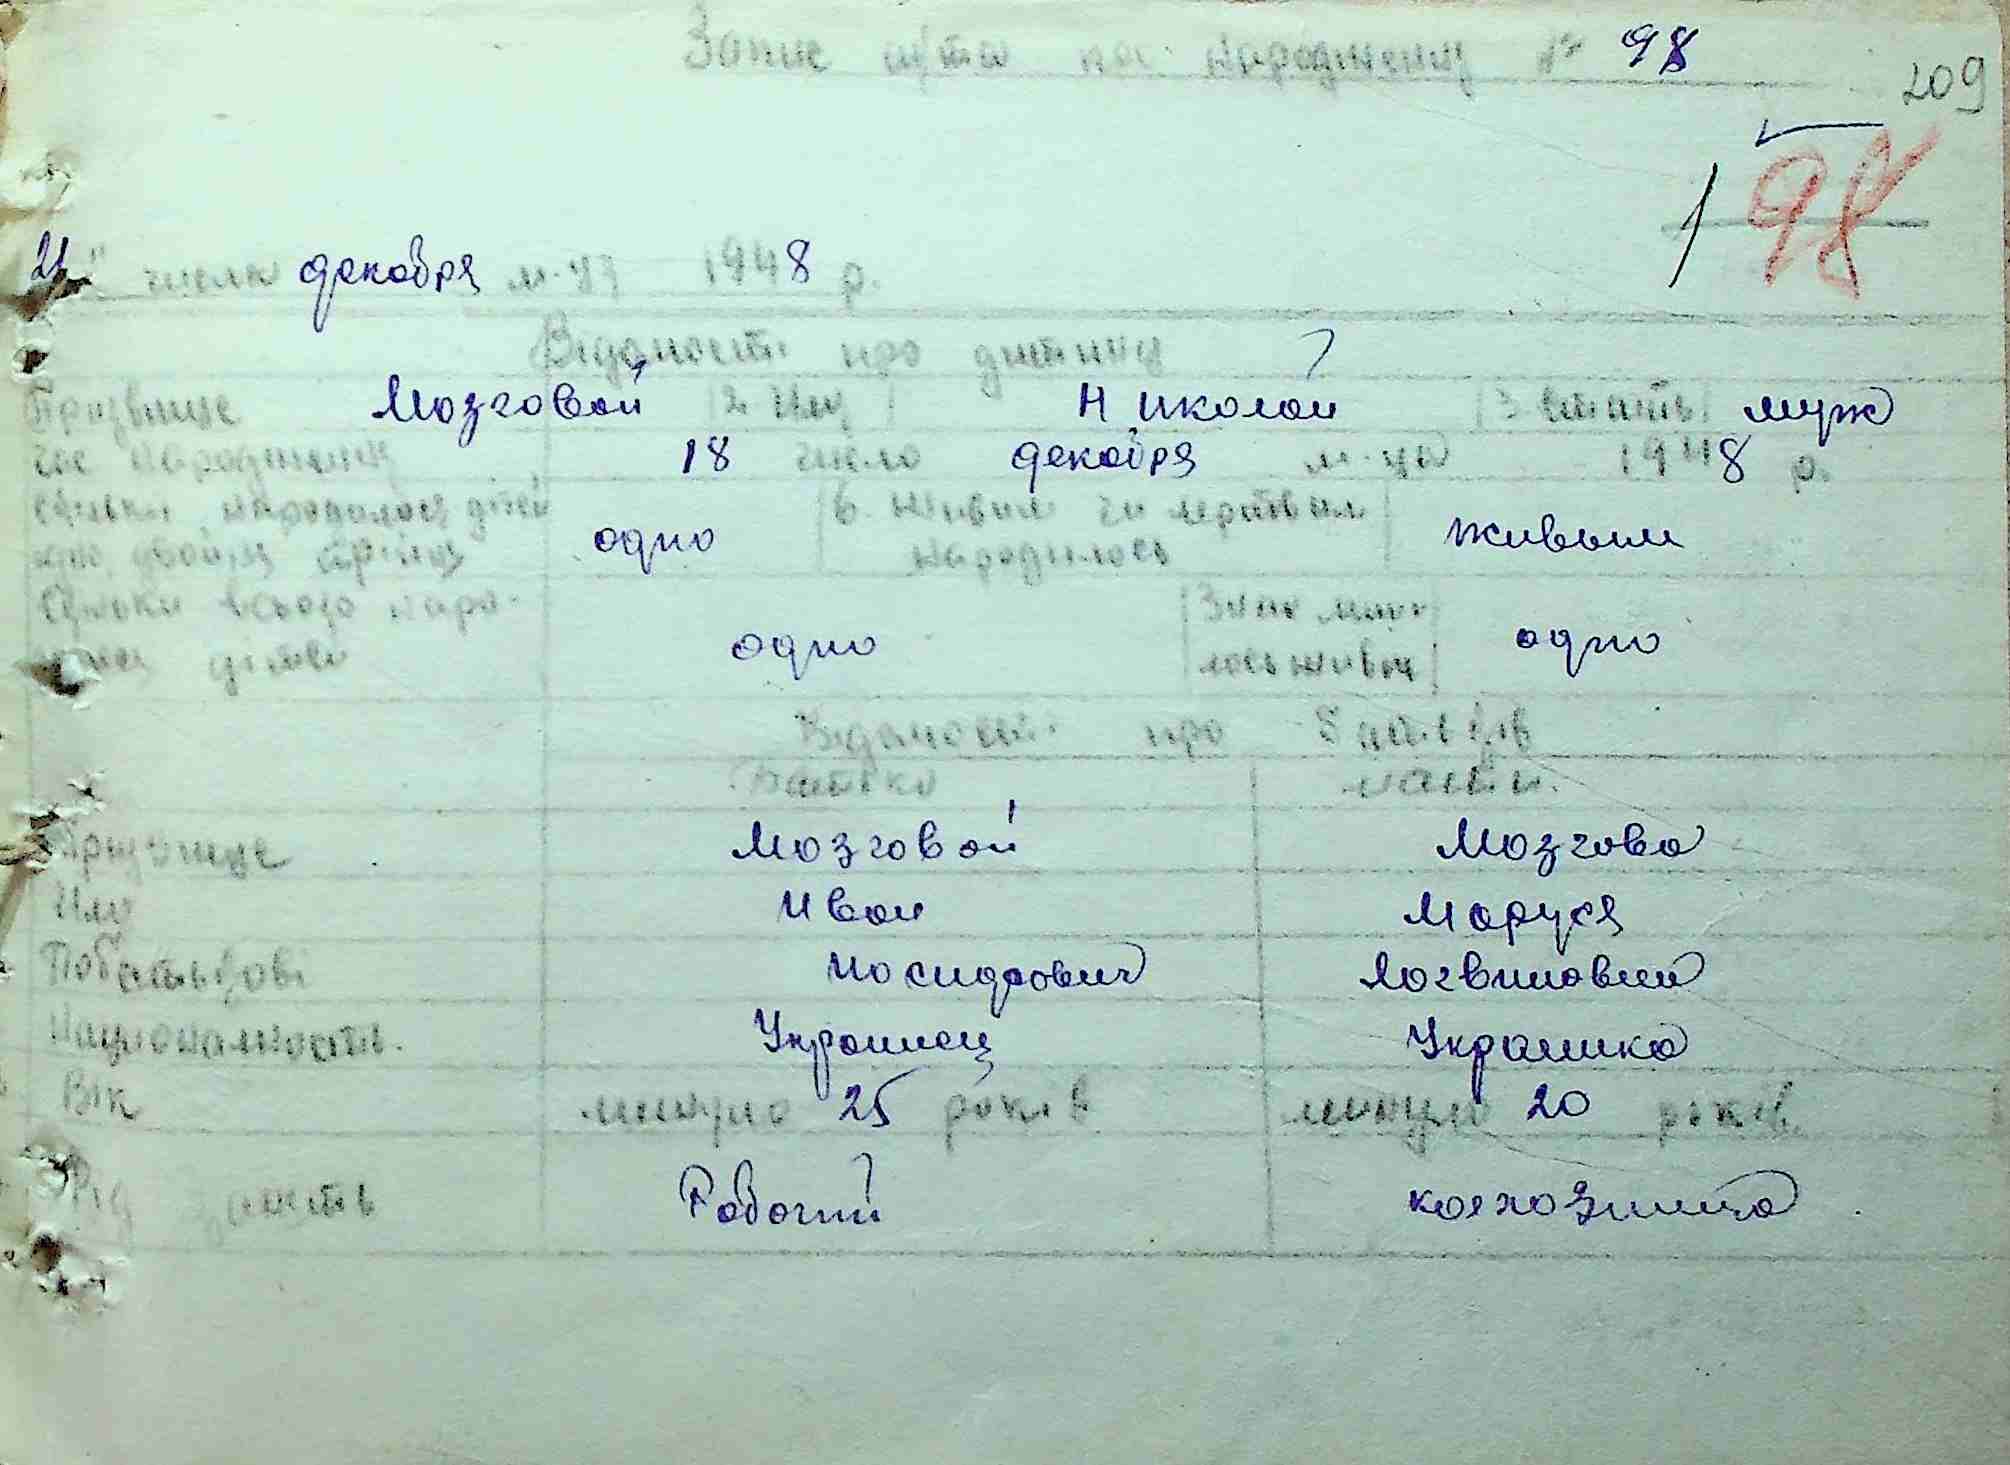 Запис акта про народженну № 98
209
98
21" числа декабря м-ця 1948 р.
Відомості про дитину
Прізвище Мозговой 2. Імя Николай 3. Стать муж
час народженну 18 число декабря м-ця 1948 р.
скільки народилося дітей одно 6. Живим чи мертвим живым
одно, двойня, трійня народилось
Скільки всього наро- одно З них одно
дітей
Відомості про батьків
Батько мати
Прізвище Мозговой Мозгова
Имя Иван Маруся
Побатькові Иосидрович Логвиновна
Национальность. Украинец Украинка
Вік минуло 25 років минуло 20 років
Рід занять Робочий колхозница